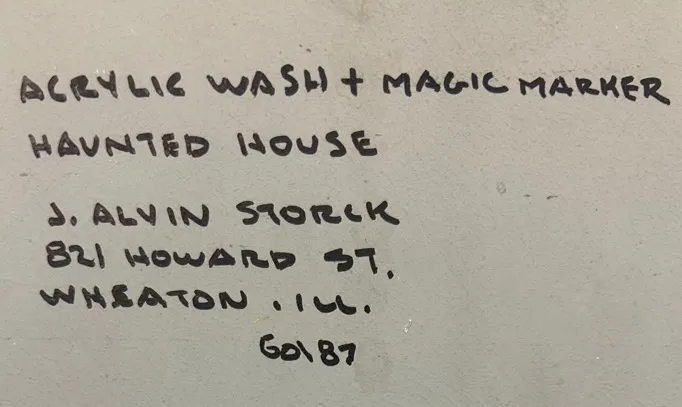 ACRYLIC WASH + MAGIC MARKER
HAUNTED HOUSE
J. ALVIN STORCK
821 HOWARD ST.
WHEATON . ILL.
60187